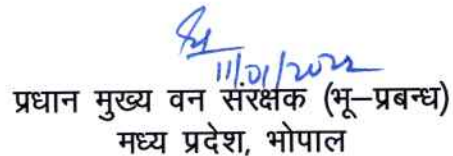 11/01/2022
प्रधान मुख्य वन संरक्षक (भू–प्रबन्ध)
मध्य प्रदेश, भोपाल